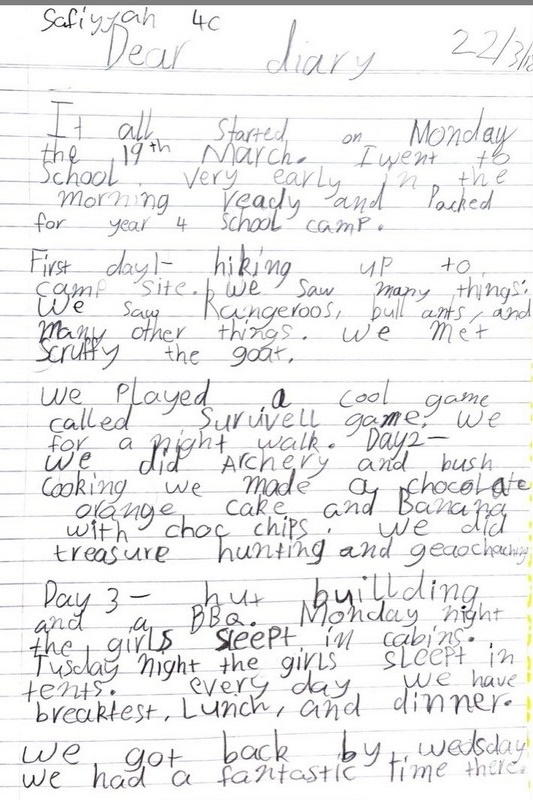 Safiyyah 4c
Dear diary 22/3/18
It all started on Monday
the 19th March. I went to
School very early in the
morning ready and Packed
for year 4 School camp.
First day1- hiking up to
camp site. We saw many things.
We saw Kangeroos, bull ants, and
many other things. We met
Scruffy the goat.
We Played a cool game
called Survivell game. We
for a night walk. Day2-
We did Archery and bush
cooking we made a chocolate
orange cake and Banana
with choc chips. We did
treasure hunting and geaochaching
Day 3- hut buillding
and a BBQ. Monday night
the girls sleept in cabins.
Tusday night the girls sleept in
tents. every day we have
breaktest, Lunch, and dinner.
We got back by wedsday
We had a fantastic time there.